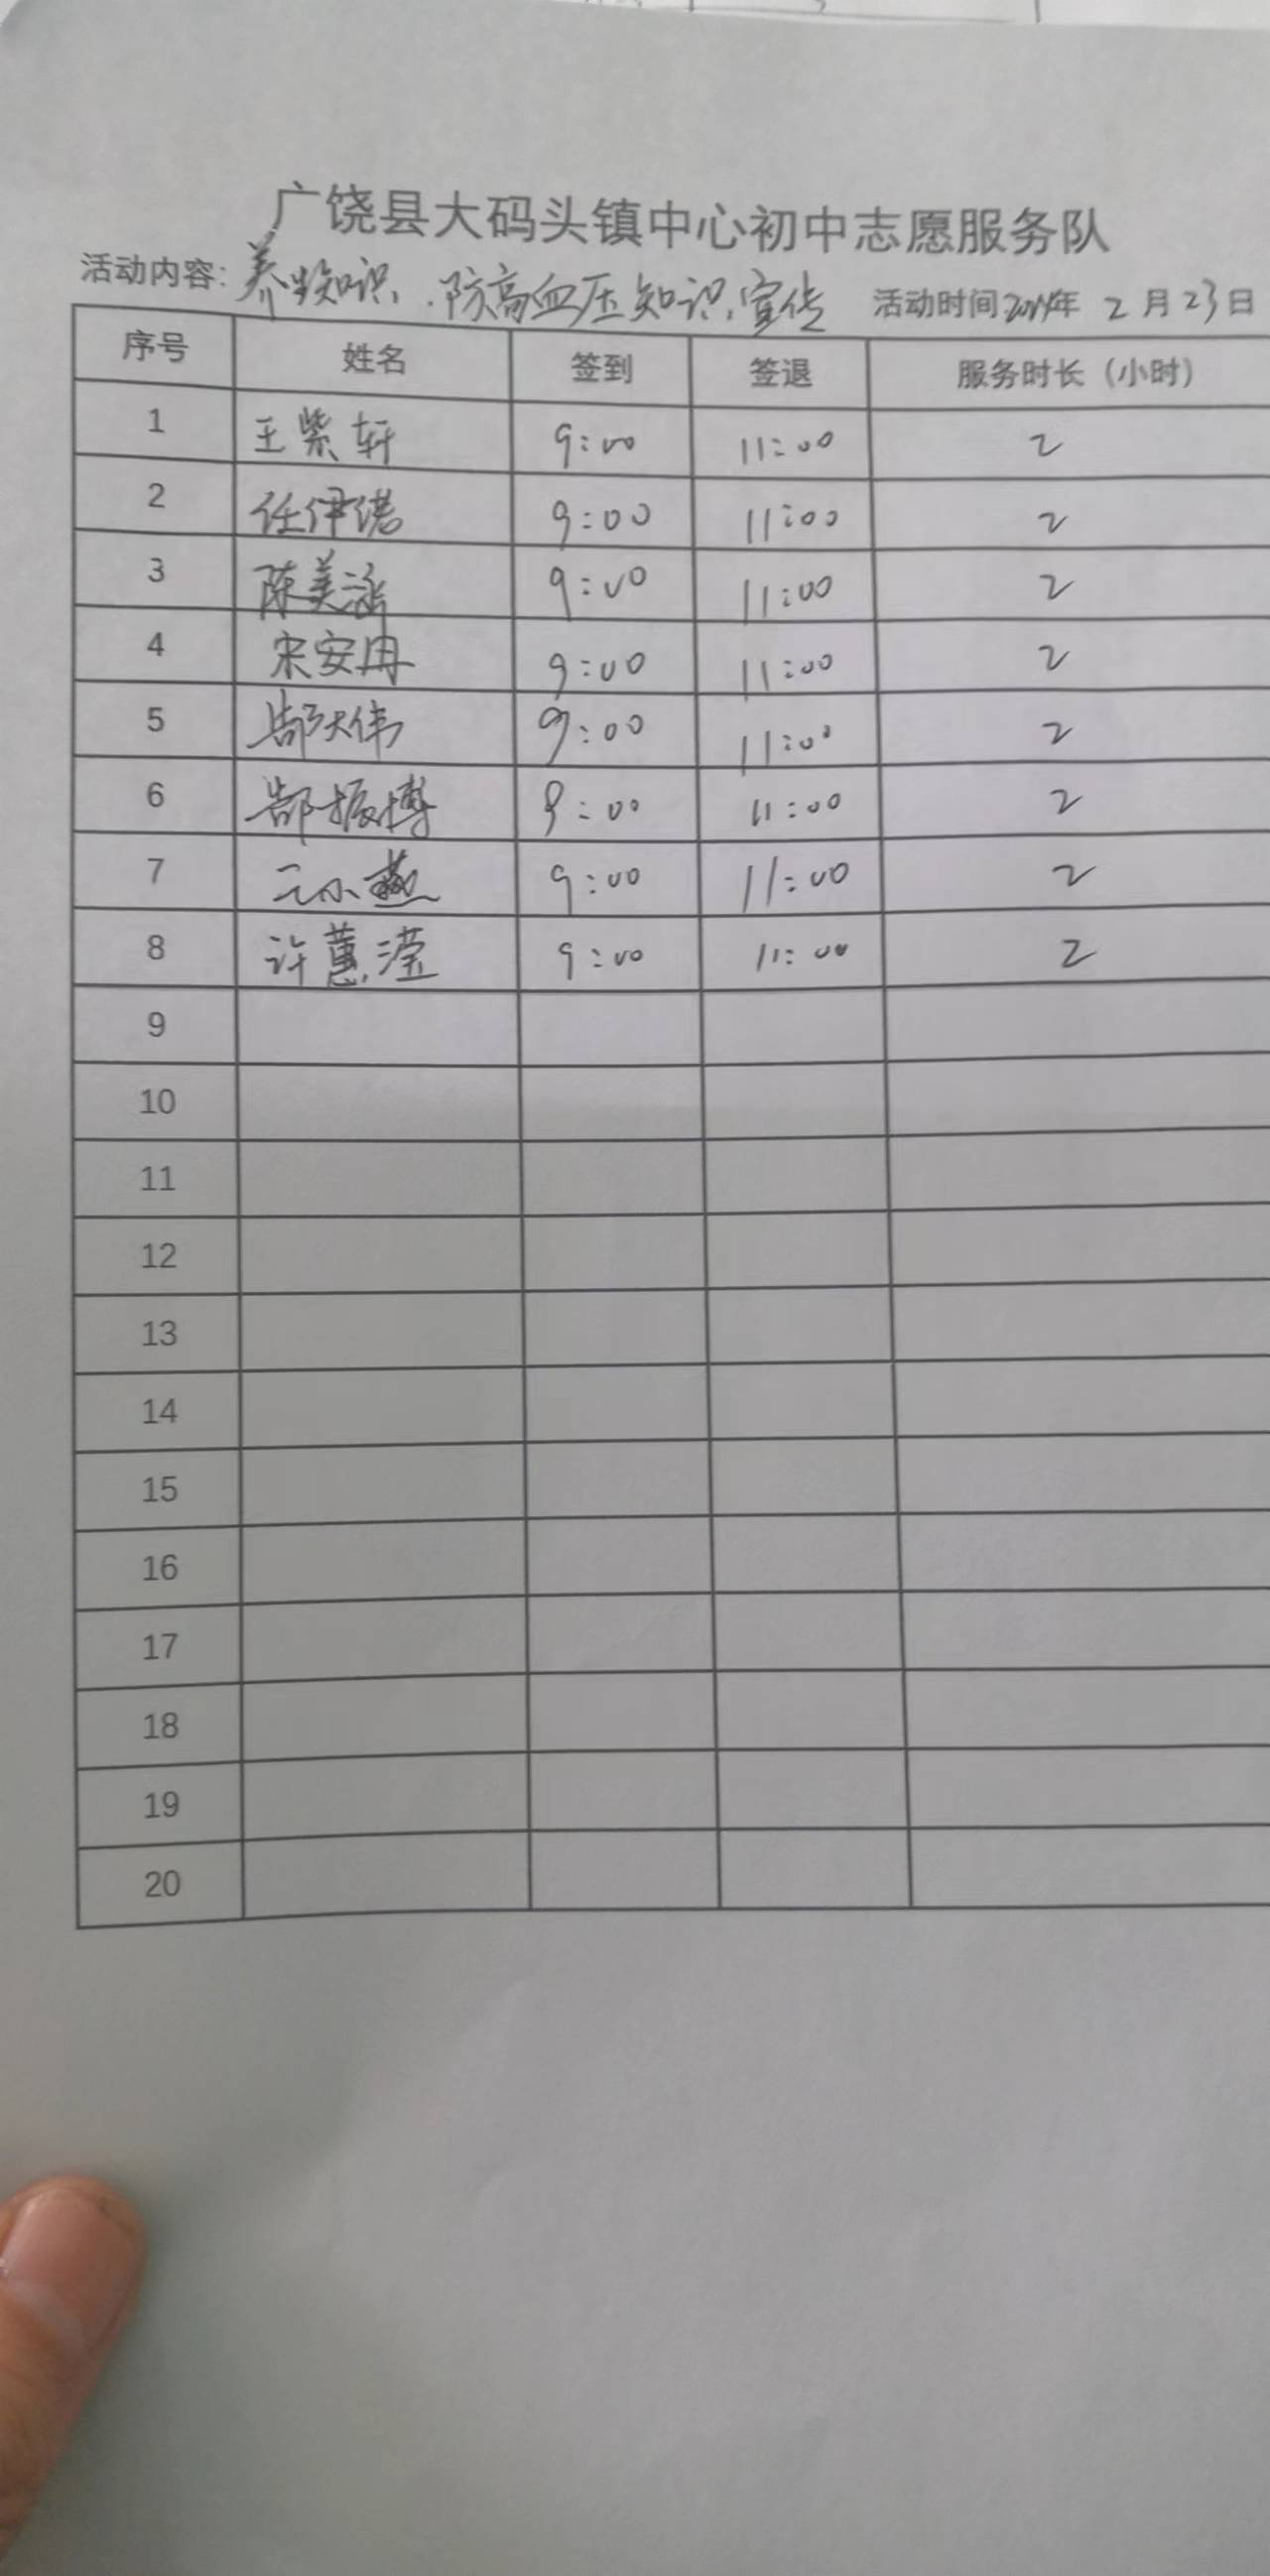 广饶县大码头镇中心初中志愿服务队
活动内容：养生知识、防高血压知识宣传 活动时间 年 2 月 23 日
序号 姓名 签到 签退 服务时长（小时）
1 王紫轩 9:00 11:00 2
2 任伊诺 9:00 11:00 2
3 陈美涵 9:00 11:00 2
4 宋安冉 9:00 11:00 2
5 郜天伟 9:00 11:00 2
6 郜振博 9:00 11:00 2
7 王小燕 9:00 11:00 2
8 许蕙滢 9:00 11:00 2
9
10
11
12
13
14
15
16
17
18
19
20